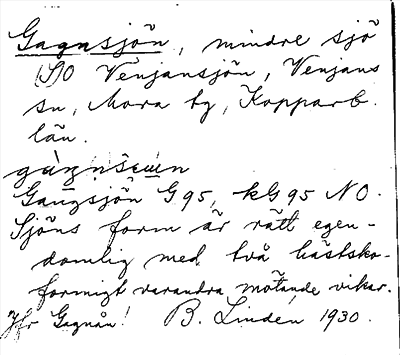 Gagnsjön, mindre sjö
(S)O Venjansjön, Venjans
sn, Mora tg, Kopparb.
län.
gàgnšɯn
Gangsjön G 95, kG 95 NO.
Sjöns form är rätt egen-
domlig med två hästsko-
formigt varandra mötande vikar.
Jfr Gagnån! B. Linden 1930.